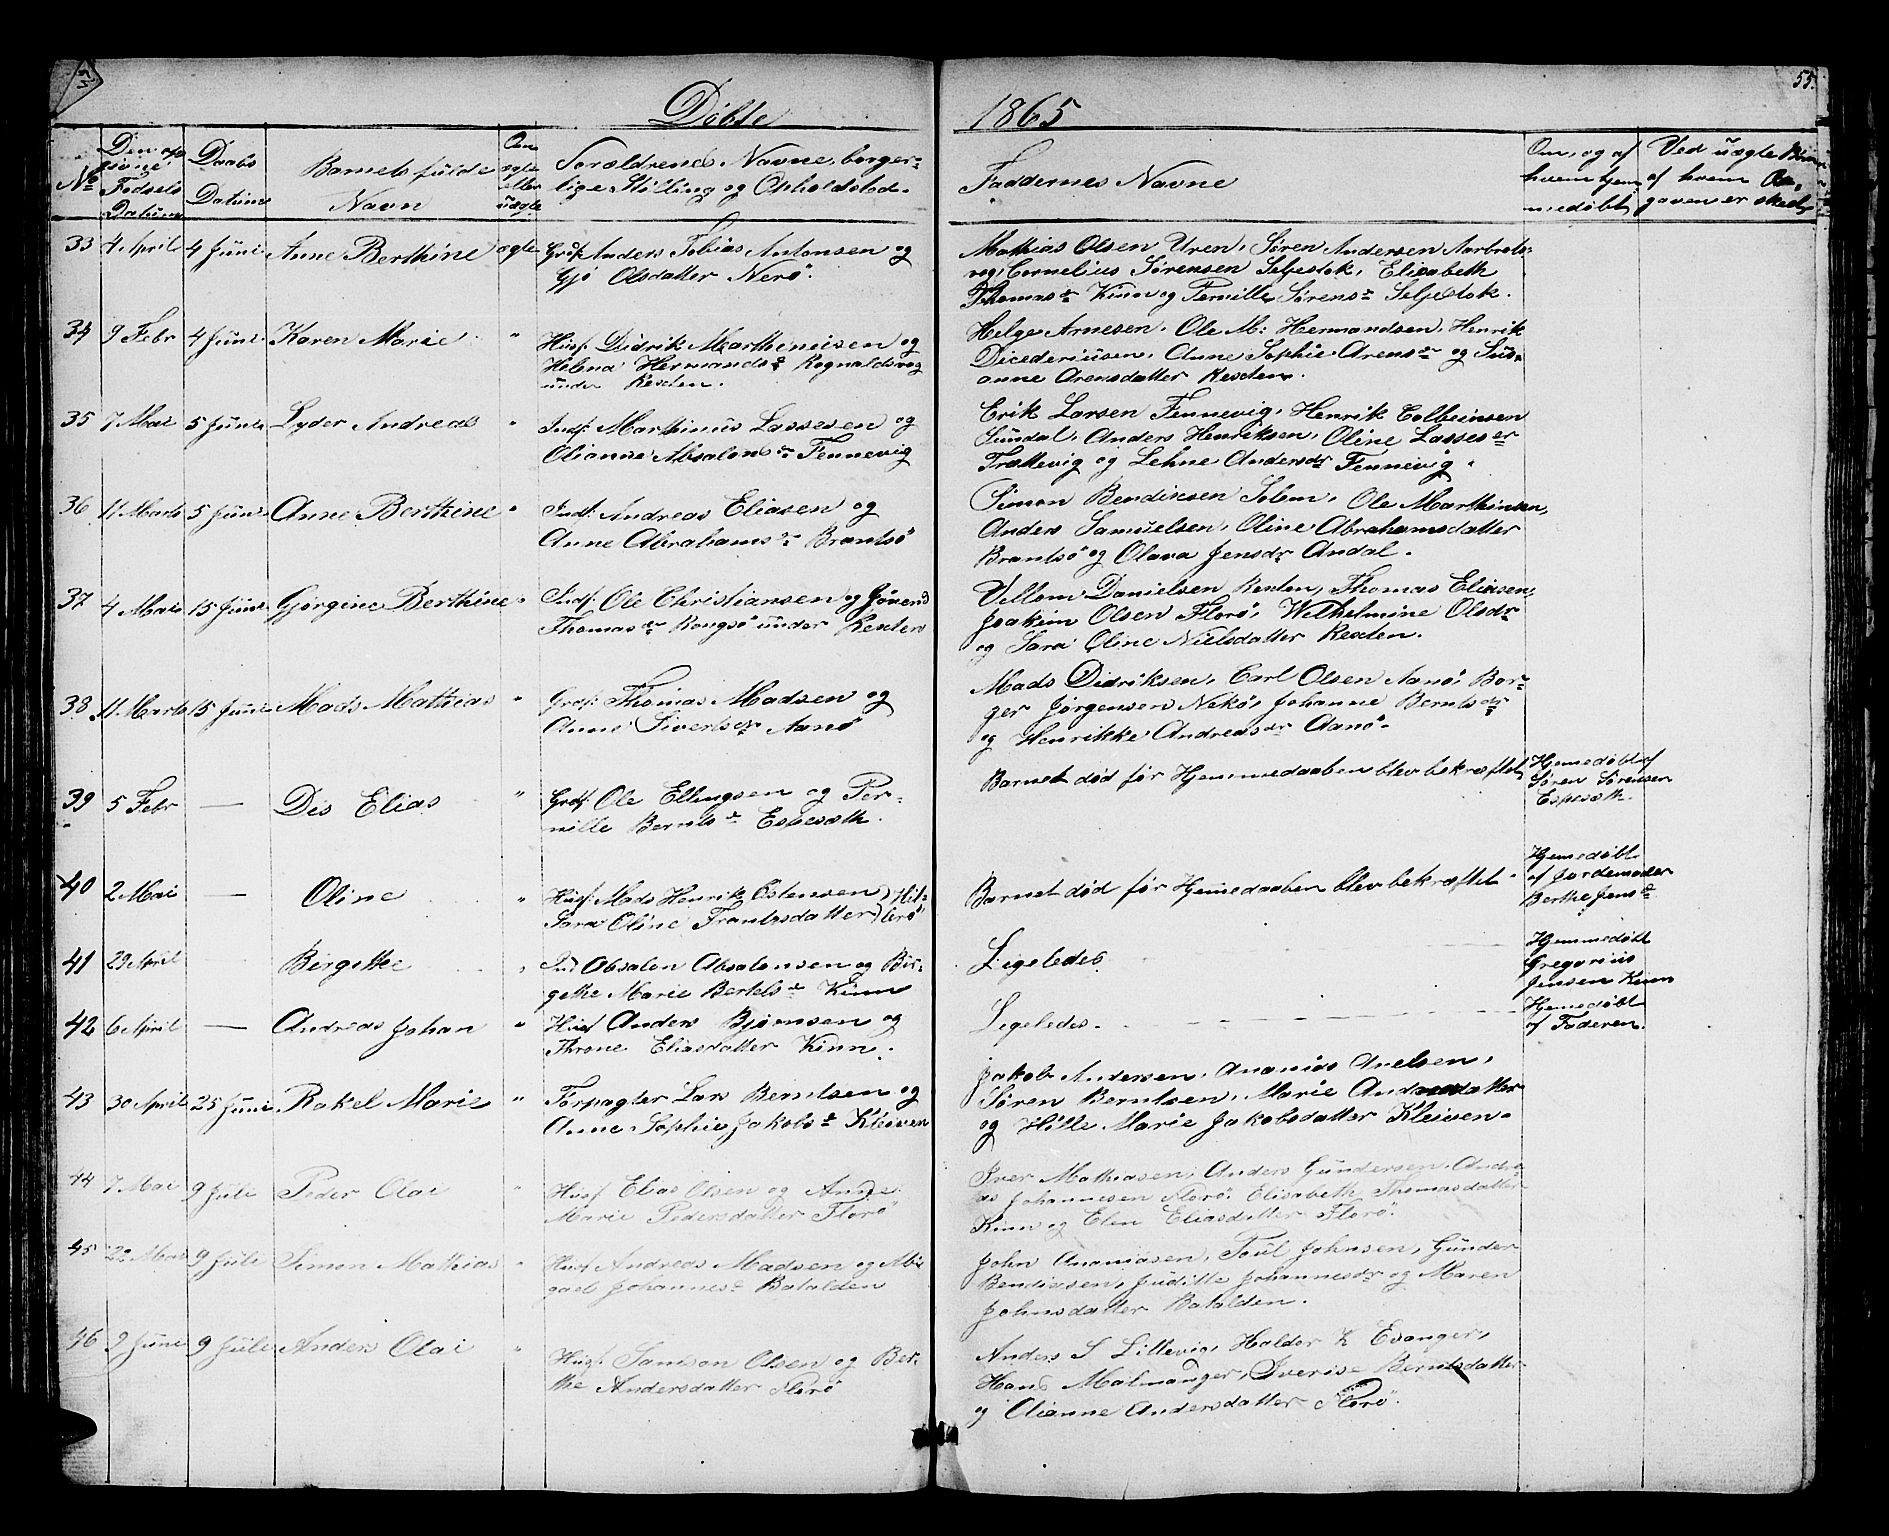 55.
Døbte 1865
No
Den opgivne Fødsels Datum
Daabs Datum
Barnets fulde Navn
Om ægte eller uægte
Forældrenes Navne, borgerlige Stilling og Opholdsted.
Faddernes Navne
Om, og af hvem hjemmedøbt
Ved uægte Børn af hvem
33 4 April 4 Juni Anne Berthine ægte Grdf. Anders Tobias Antonsen og
Gjø Olsdatter Nerø.
Mathias Olsen Uren, Søren Andersen
Cornelius Sørensen Seljestok, Elisabeth
Thomasdr Kinn og Pernille Sørensdr Seljestok.
34 9 Febr 4 Juni Karen Marie " Husf. Didrik Martheniisen og
Helena Hermandsdr Rognaldsvog
under Rexten.
Helge Arnesen, Ole M: Hermandsen, Henrik
Anne Sophie Arensdr og Sus-
anne Arensdatter Rexten.
35 7 Mai 5 Juni Lyder Andreas " Indf. Marthinus Lassesen og
Olianne Absalonsdr Fennevig
Erik Larsen Fennevig, Henrik Colbeinsen
Sundal, Anders Henriksen, Oline Lassesdr
Trættevig og Lehne Andersdr Fennevig.
36 11 Marts 5 Juni Anne Berthine " Indf. Andreas Eliasen og
Anne Abrahamsdr Brantsø
Simon Bendixsen Solem, Ole Marthinsen,
Anders Samuelsen, Oline Abrahamsdatter
Brantsø og Olava Jensdr Andal.
37 4 Mars 15 Juni Gjørgine Berthine " Indf. Ole Christiansen og
Thomasdr Rongsø under Rexten
Vellom Danielsen Rexten, Thomas Eliasen,
Joakim Olsen Florø, Wilhelmine Olsdr
og Sara Oline Nielsdatter Rexten.
38 11 Marts 15 Juni Mads Mathias " Grdf: Thomas Madsen og
Anne Sivertsdr Aanø
Mads Didriksen, Carl Olsen Aanø, Bør-
ger Jørgensen Nekø, Johanne Berntsdr
og Henrikke Andreasdr Aanø.
39 5 Febr — Dis Elias " Grdf. Ole Ellingsen og Per-
nille Berntsdr Espesæth.
Barnet død før Hjemmedaaben blev bekræftet
Hjemedøbt af
Søren Sørensen
Espesæth.
40 2 Mai — Oline " Husf. Mads Henrik Østensen
Sara Oline Frantsdatter
Barnet død før Hjemedaaben blev bekræftet.
Hjemedøbt
af Jordemoder
Berthe Jensdr
41 29 April — Birgethe " Ind Absalon Absalonsen og Bir-
gethe Marie Bertelsdr Kinn
Ligeledes.
Hjemmedøbt
Gregorius
Jensen Kinn
42 6 April — Andreas Johan " Husf Anders Bjørnsen og
Throne Eliasdatter Kinn.
Ligeledes.
Hjemedøbt
af Faderen.
43 30 April 25 Juni Rakel Marie " Forpagter Lars Berntsen og
Anne Sophie Jakobsdr Kleiven
Jakob Andersen, Ananias Axelsen,
Søren Berntsen, Marie Andreasdatter
og Hille Marie Jakobsdatter Kleiven.
44 7 Mai 9 Juli Peder Olai " Husf Elias Olsen og Anne
Marie Pedersdatter Florø
Iver Mathiasen, Anders Gundersen, Andre-
as Johannesen Florø, Elisabeth Thomasdatter
Kinn og Elen Eliasdatter Florø.
45 22 Mai 9 Juli Simon Mathias " Husf Andreas Madsen og Abi-
gael Johannesdr Batalden
John Ananiasen, Poul Johnsen, Gunder
Bendixsen, Juditte Johannesdr og Maren
Johnsdatter Batalden.
46 9 Juni 9 Juli Anders Olai " Husf. Samson Olsen og Ber-
the Andersdatter Florø
Anders S Littevig, Haldor K Evanger,
Hans Malmanger, Iverise Berntsdatter
og Olianne Andersdatter Florø.